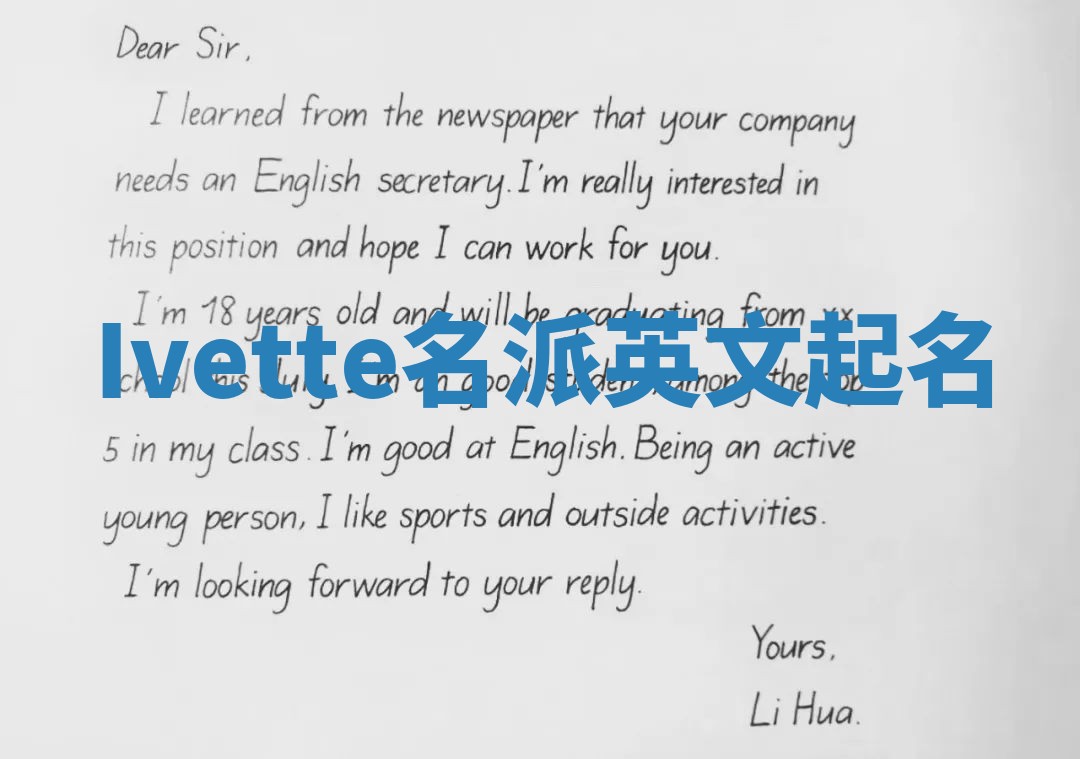 Dear Sir,
I learned from the newspaper that your company
needs an English secretary. I'm really interested in
this position and hope I can work for you.
I'm 18 years old and will be graduating from xx
Ivette名派英文起名
school this July. I'm an good student, among the top
5 in my class. I'm good at English. Being an active
young person, I like sports and outside activities.
I'm looking forward to your reply.
Yours,
Li Hua.